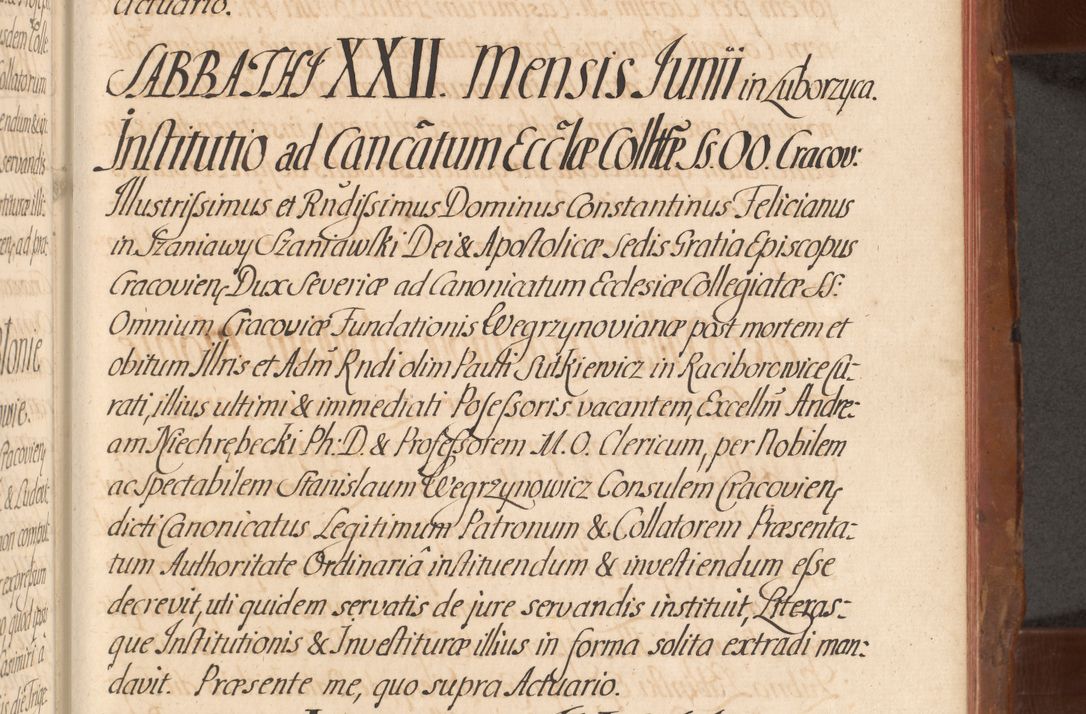 Actuario.
SABBATHI XXII. Mensis Junii in Luborzyca.
Institutio ad Cancãtum Eccl̃æ Collttæ̃ Ss. OO. Cracov:
Illustrissimus et Rñdissimus Dominus Constantinus Felicianus
in Szaniawy Szaniawski Dei & Apostolicæ Sedis Gratia Episcopus
Cracovien̨ Dux Severiæ ad Canonicatum Ecclesiæ Collegiatæ SS:
Omnium Cracoviæ Fundationis Wegrzynovianæ post mortem et
obitum Illris et Adm̃ Rndi olim Pauli Sutkiewicz in Raciborowice Cu-
rati, illius ultimi & immediati Possessoris vacantem, Excellm̃ Andre-
am Niechrębecki Ph: D. & Professorem U. O. Clericum, per Nobilem
ac Spectabilem Stanislaum Wegrzynowicz Consulem Cracovien̨
dicti Canonicatus Legitimum Patronum & Collatorem Præsenta-
tum Authoritate Ordinariâ instituendum & investiendum esse
decrevit, uti quidem servatis de jure servandis instituit, Literas-
que Institutionis & Investituræ illius in forma solita extradi man-
davit. Præsente me, quo supra Actuario.